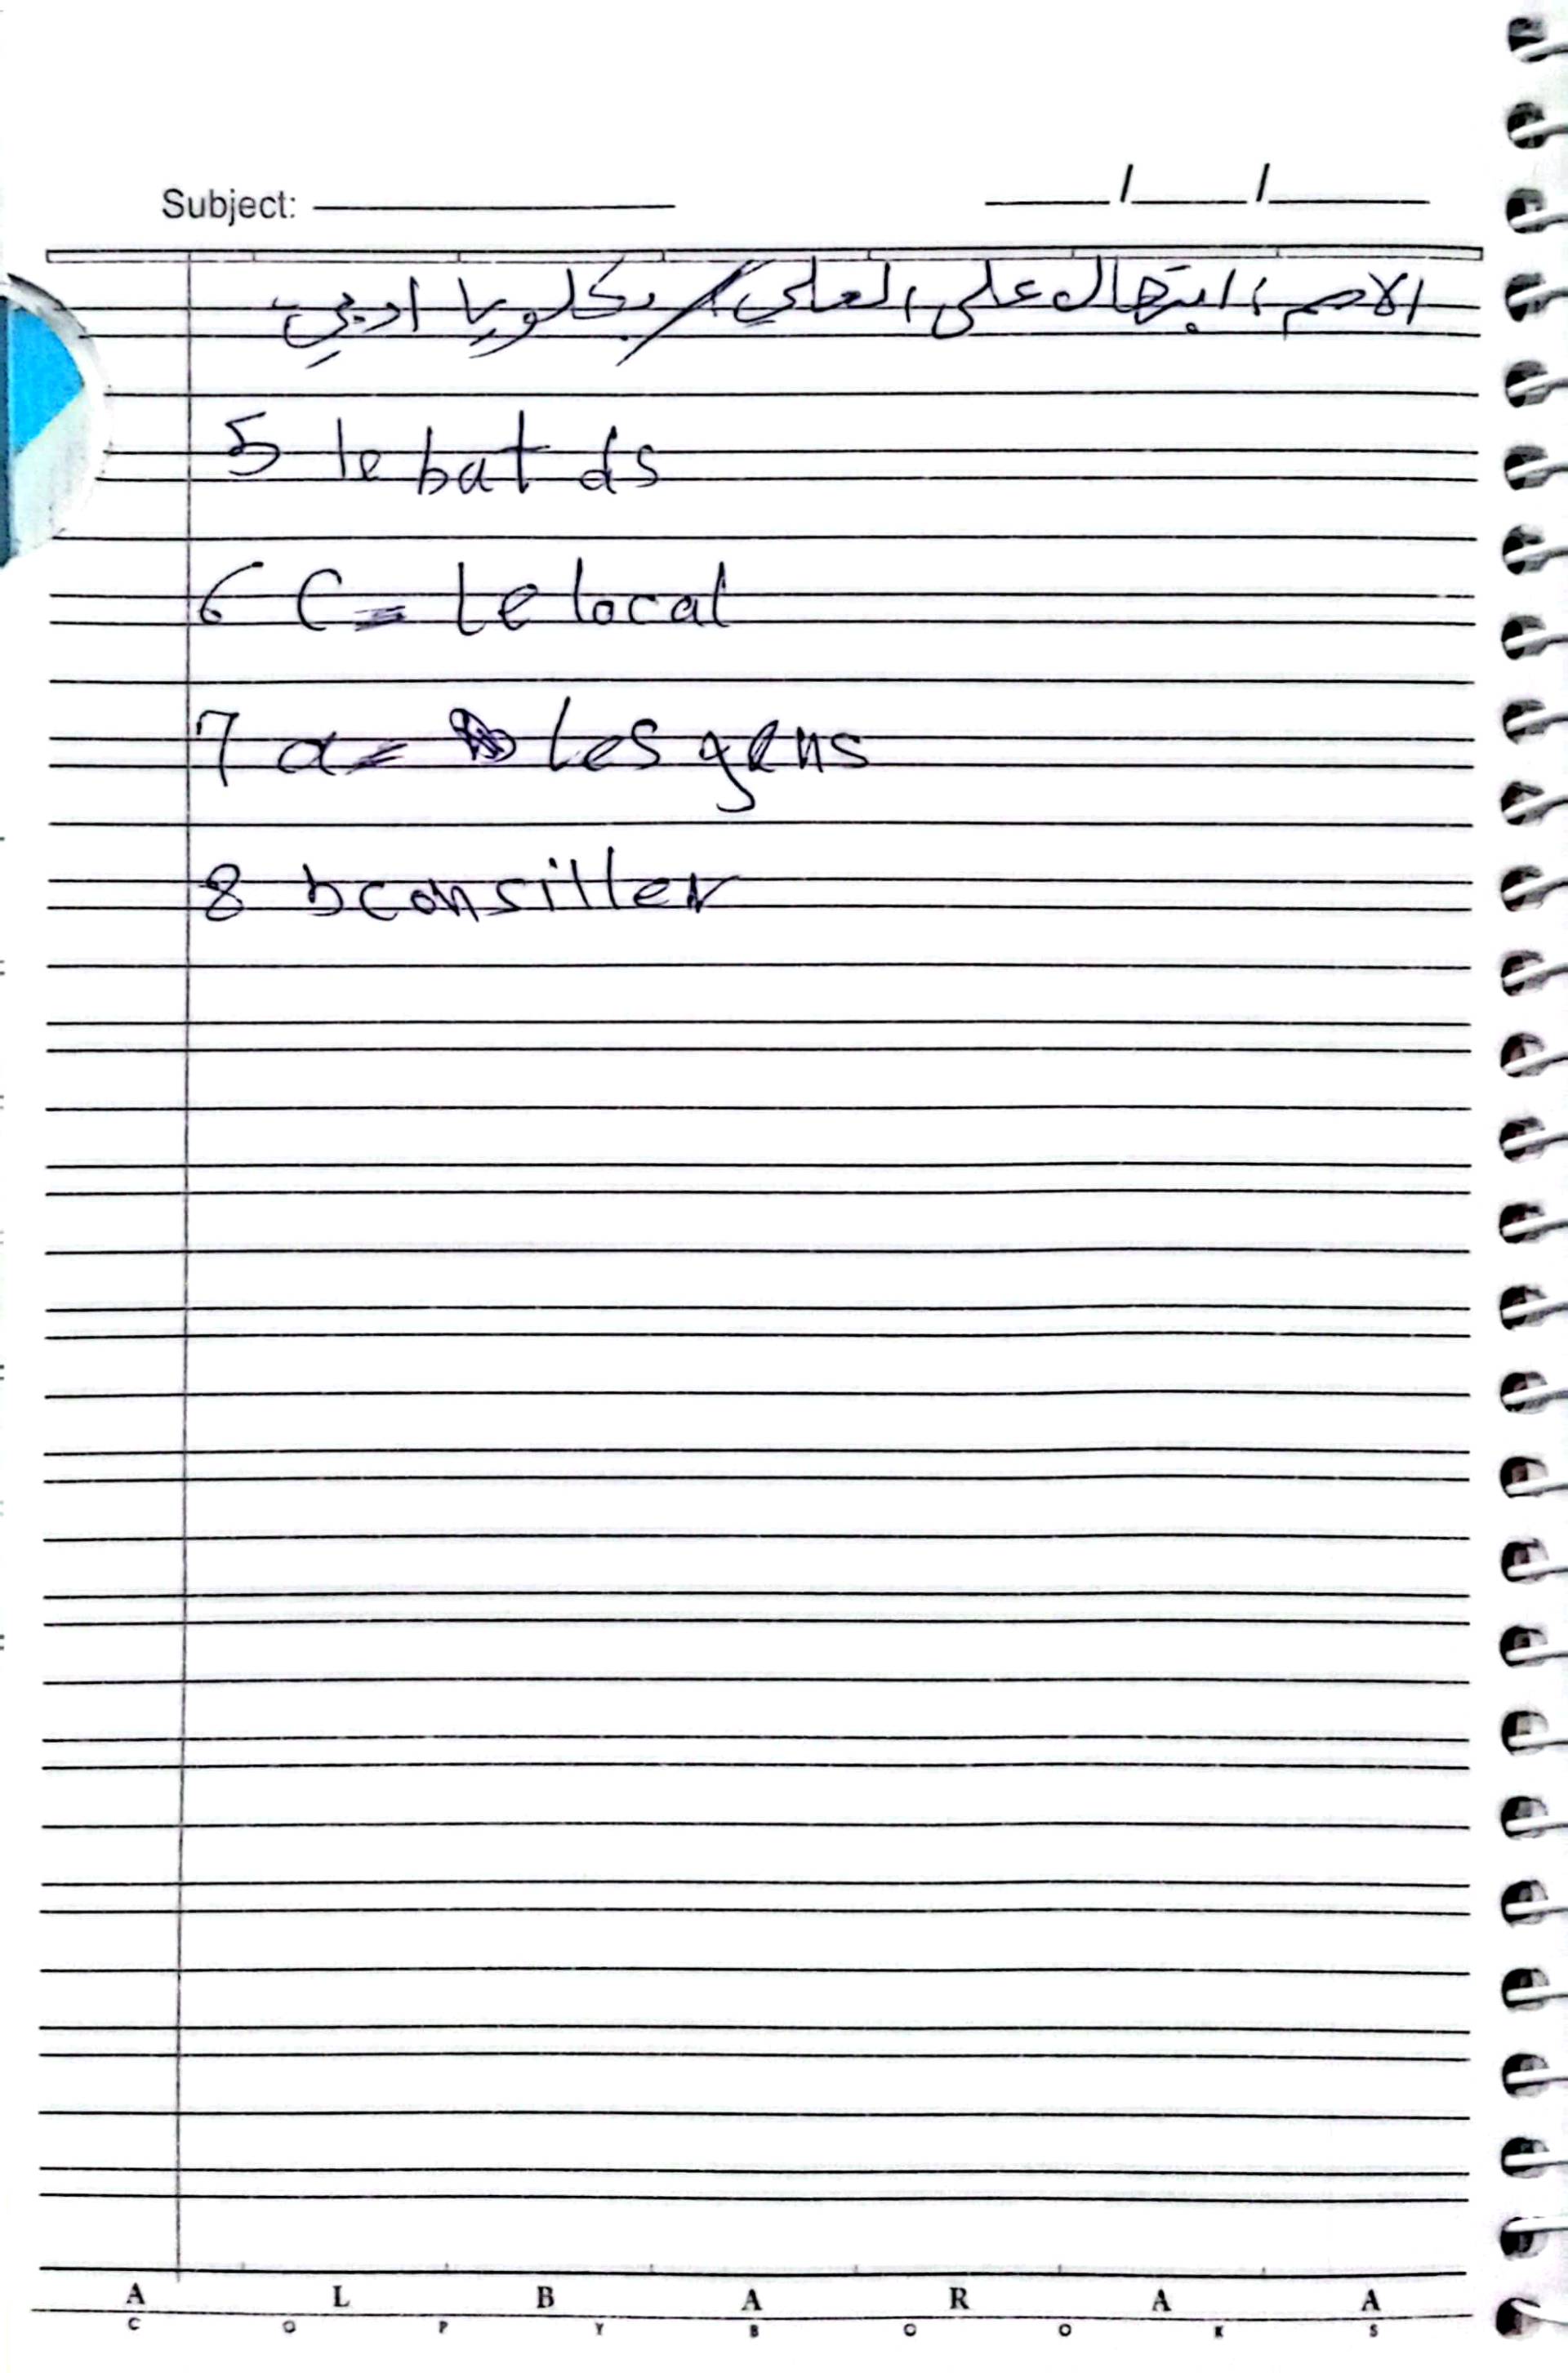 Subject: ____/____/____
الاسم: ابتهال على العلي / بكلوريا ادبي
5 le bat ds
6 C = Le local
7 a = Les gens
8 b consiller
A L B A R A A
C O P Y B O O K S